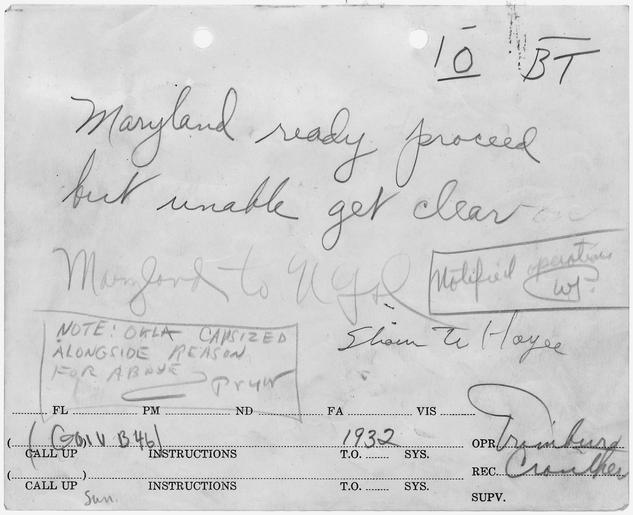 10 BT
Maryland ready proceed
but unable get clear
Maryland to
Notified operations
NOTE: OKLA CAPSIZED
ALONGSIDE REASON
FOR ABOVE
FL PM ND FA VIS
1932 OPR
( ) CALL UP INSTRUCTIONS T.O. SYS.
REC. Crowther
( ) CALL UP INSTRUCTIONS T.O. SYS.
Sun. SUPV.